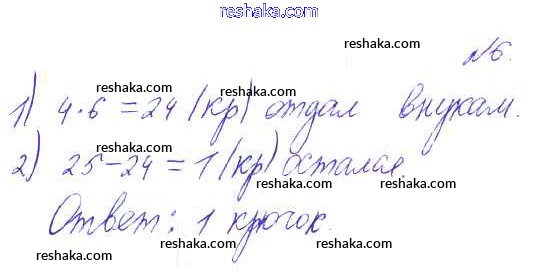 reshaka.com
№6.
reshaka.com
reshaka.com reshaka.com
1) 4·6=24 (кр) отдал внукам.
reshaka.com
reshaka.com reshaka.com
2) 25-24=1 (кр) остался.
reshaka.com reshaka.com
Ответ: 1 крючок.
reshaka.com reshaka.com
reshaka.com